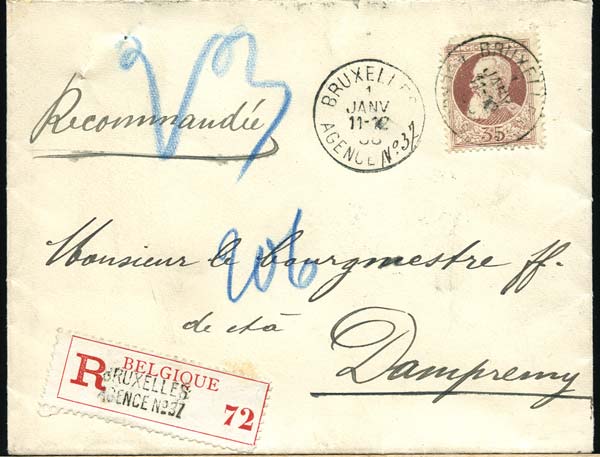 Recommandée
BRUXELLES
1
JANV
11-12
AGENCE No.37
BRUXELL
35
206
Monsieur le bourgmestre ff.
de et à
Dampremy
R BELGIQUE
BRUXELLES
AGENCE No.37
72